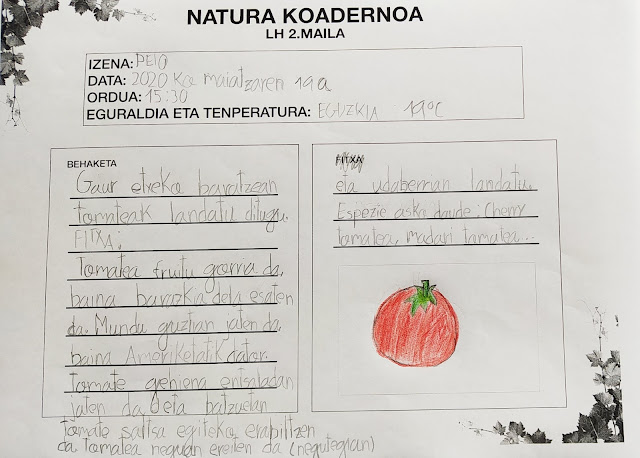 NATURA KOADERNOA
LH 2.MAILA
IZENA: PEIO
DATA: 2020 ko maiatzaren 19a
ORDUA: 15:30
EGURALDIA ETA TENPERATURA: EGUZKIA 19ºC
BEHAKETA
Gaur etxeko baratzean
tomateak landatu ditugu.
FITXA:
Tomatea fruitu gorria da,
baina barazkia dela esaten
da. Mundu guztian jaten da,
baina Ameriketatik dator.
Tomate gehiena entsaladan
jaten da eta batzuetan
tomate saltsa egiteko erabiltzen
da tomatea neguan ereiten da (negutegian)
FITXA
eta udaberrian landatu.
Espezie asko daude: Cherry
tomatea, madari tomatea...